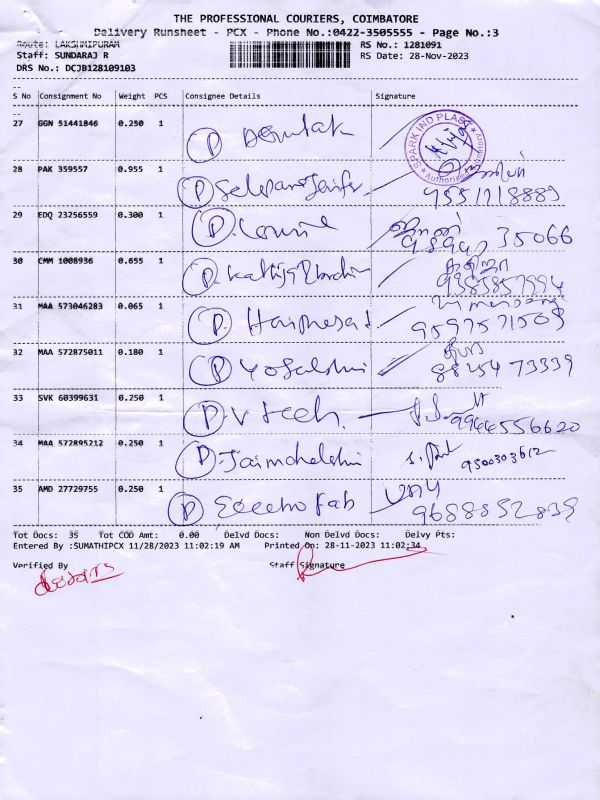 THE PROFESSIONAL COURIERS, COIMBATORE
Delivery Runsheet - PCX - Phone No.:0422-3505555 - Page No.:3
Route: LAKSHMIPURAM
RS No.: 1281091
Staff: SUNDARAJ R
RS Date: 28-Nov-2023
DRS No.: DCJB128109103
S No Consignment No Weight PCS Consignee Details Signature
27 GGN 51441846 0.250 1 D
SPARK IND PLAST
Authorised Signatory
28 PAK 359557 0.955 1 D
9551718889
29 EDQ 23256559 0.300 1 D
98947 35066
30 CMM 1008936 0.655 1 D. Kathija
9385857594
31 MAA 573046283 0.065 1 D. Hariprasad
9597571505
32 MAA 572875011 0.180 1 D
88254 73339
33 SVK 60399631 0.250 1 D. V tech.
9944556620
34 MAA 572895212 0.250 1 D.
9500303612
35 AMD 27729755 0.250 1 D Fab
9688852839
Tot Docs: 35 Tot COD Amt: 0.00 Delvd Docs: Non Delvd Docs: Delvy Pts:
Entered By :SUMATHIPCX 11/28/2023 11:02:19 AM Printed On: 28-11-2023 11:02:34
Verified By Staff Signature